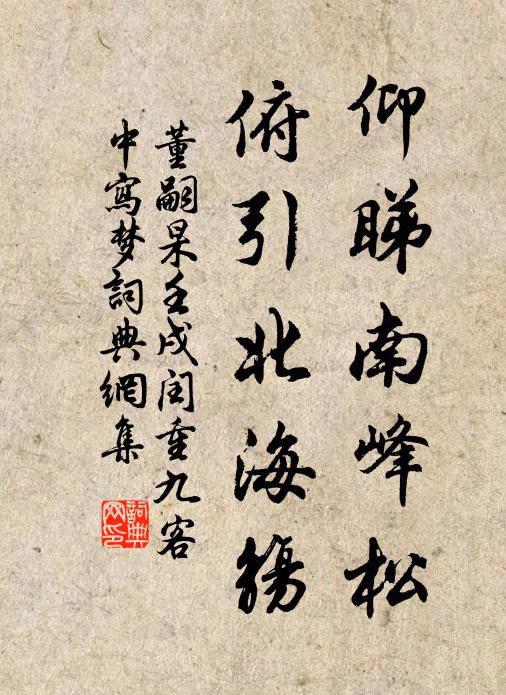 仰睇南峰松
俯引北海觞
董嗣杲壬戌闰重九客
中寫梦詞典網集
詞典
网印